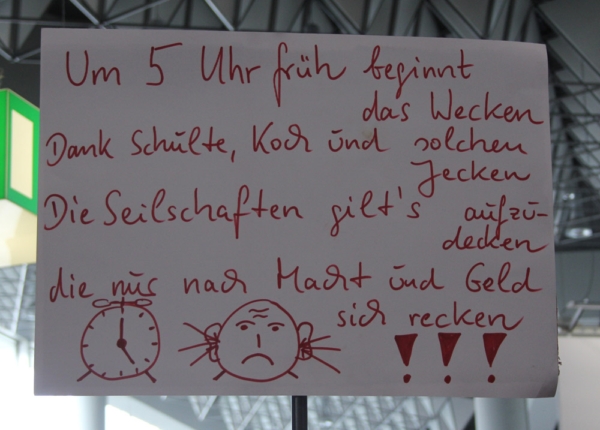 Um 5 Uhr früh beginnt
das Wecken
Dank Schulte, Koch und solchen
Jecken
Die Seilschaften gilt's aufzu-
decken
die nur nach Macht und Geld
sich recken
!!!